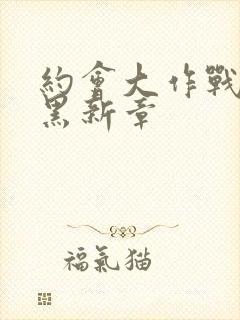 約會大作戰
黑新章
福氣猫